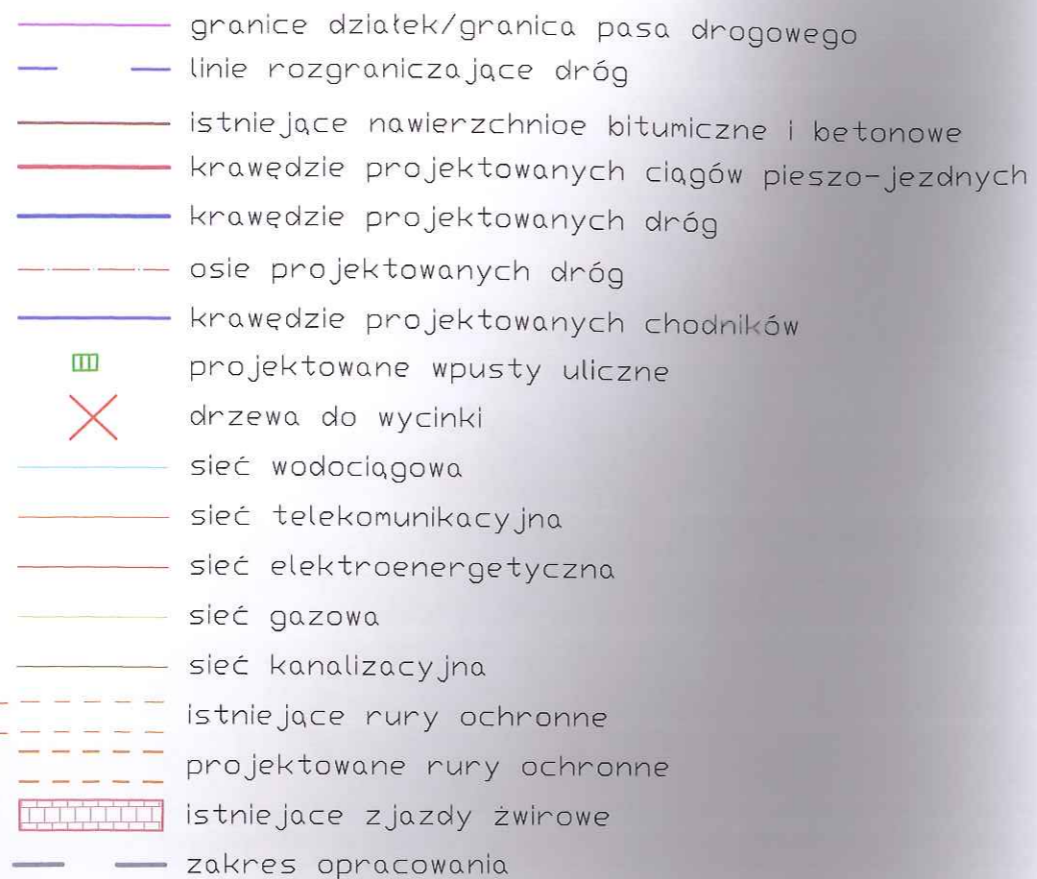 granice działek/granica pasa drogowego
linie rozgraniczające dróg
istniejące nawierzchnioe bitumiczne i betonowe
krawędzie projektowanych ciągów pieszo-jezdnych
krawędzie projektowanych dróg
osie projektowanych dróg
krawędzie projektowanych chodników
projektowane wpusty uliczne
drzewa do wycinki
sieć wodociągowa
sieć telekomunikacyjna
sieć elektroenergetyczna
sieć gazowa
sieć kanalizacyjna
istniejące rury ochronne
projektowane rury ochronne
istniejace zjazdy żwirowe
zakres opracowania